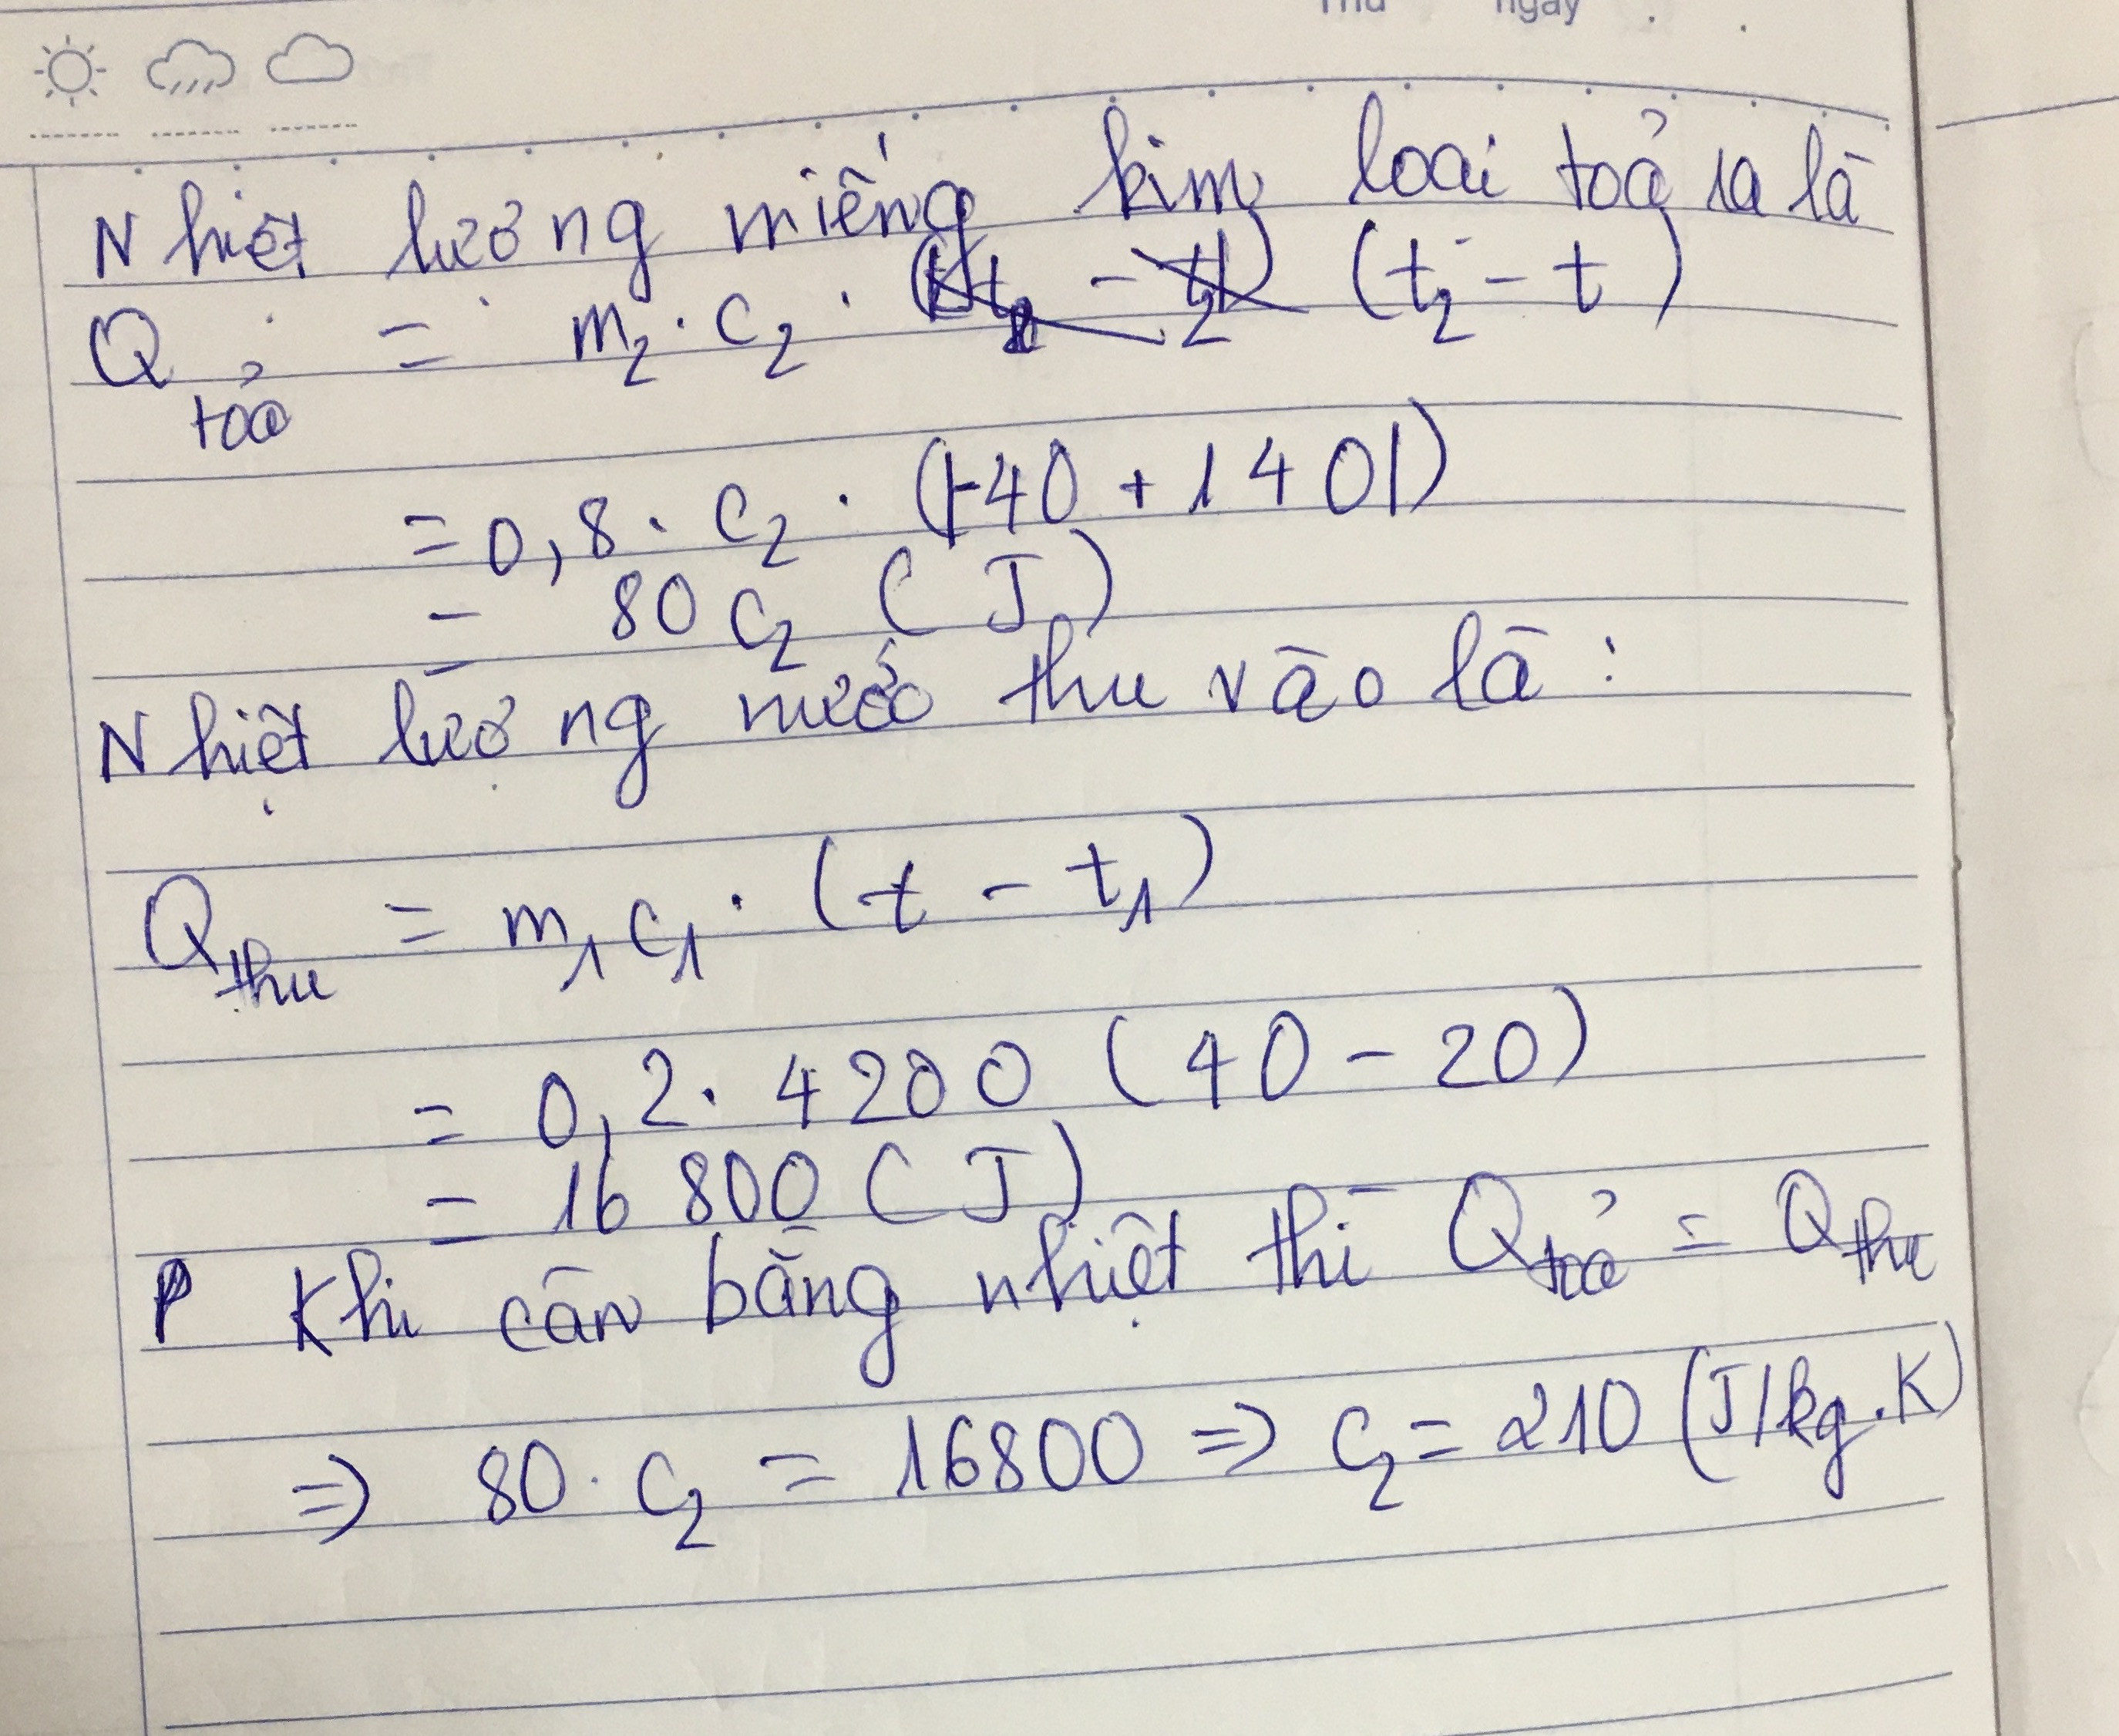 ngày
Nhiệt lượng miếng kim loại toả ra là
Q toả = m₂ . c₂ . (t₂ - t)
= 0,8 . c₂ . (|-40 + 140|)
= 80 c₂ (J)
Nhiệt lượng nước thu vào là :
Q thu = m₁ c₁ . (t - t₁)
= 0,2 . 4200 (40 - 20)
= 16 800 (J)
Khi cân bằng nhiệt thì Q toả = Q thu
=> 80 . c₂ = 16800 => c₂ = 210 (J/kg.K)